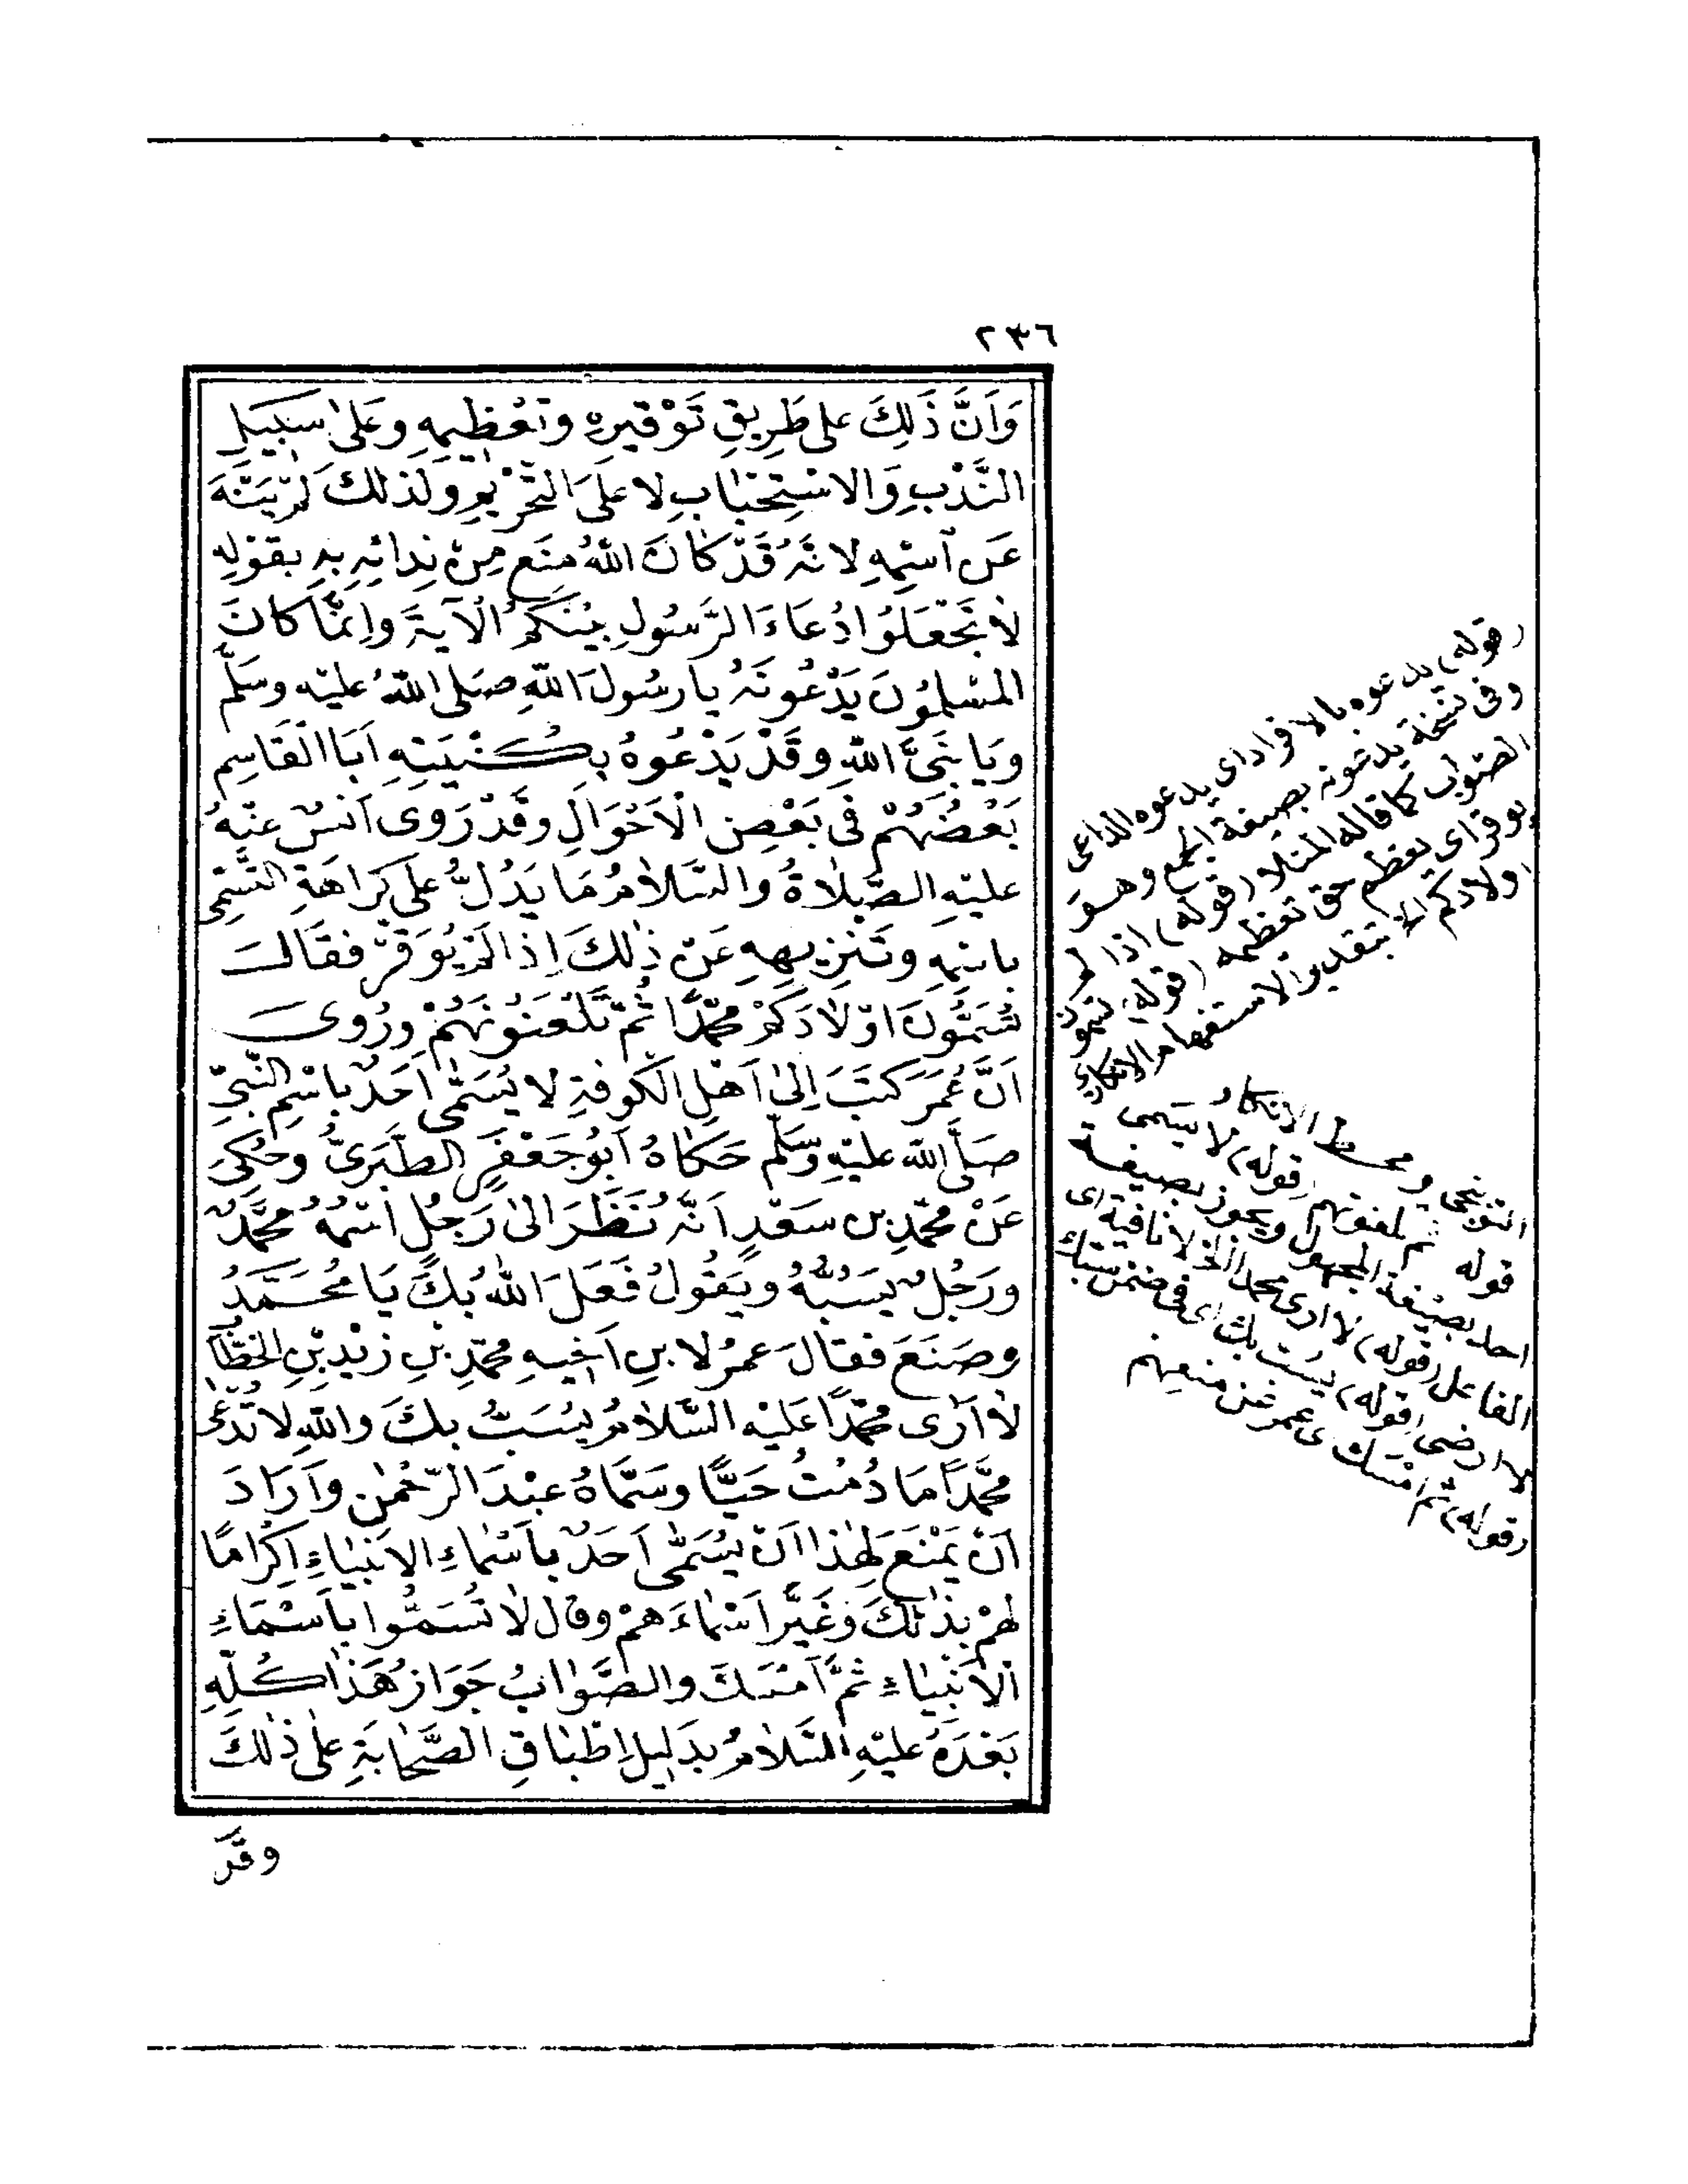 ٢٣٦
وَاَنَّ ذَلِكَ على طَرِيقِ تَوْقيرِهِ وتَعْظِيمِهِ وعَلىٰ سَبِيلِ
النَّدْبِ وَالاسْتِحْبَابِ لا عَلَى التَّحْرِيْمِ ولذلك لَمْ يَنْهَ
عَن ٱسْمِهِ لانَّهُ قَدْ كَانَ اللهُ مَنَع مِنْ نِدائِهِ بِهِ بقَوْلِهِ
لاٰ تَجْعَلُوا دُعَاءَ الرَّسُولِ بَيْنَكُمْ الْآيةَ وإنَّمَا كانَ
المسْلِمُونَ يَدْعُونَهُ يا رسُولَ اللهِ صَلى اللهُ عليْه وسَلَّم
ويَا نَبِىَّ اللهِ وقَدْ يَدْعُوهُ بِكُنْيَتِهِ اَبَا الْقَاسِمِ
بَعْضُهُمْ فى بَعْضِ الْاَحْوَالِ وقَدْ رَوى اَنسٌ عنْهُ
عليْهِ الصَّلاةُ والسَّلاٰمُ مَا يَدُلُّ عَلَى كَرَاهَةِ التَّسَمِّى
باسْمِهِ وتَنْزِيهِهِ عَنْ ذٰلِكَ اِذَا لَمْ يُوَقَّرْ فقَالَ
تُسَمُّونَ اَوْلاٰدَكُمْ محمَّدًا ثُمَّ تَلْعَنُونَهُمْ ورُوىَ
اَنَّ عُمَرَ كَتَبَ اِلىٰ اَهْلِ الكُوفَةِ لا يُسَمّٰى اَحَدٌ باسْمِ النَّبِىِّ
صَلَّى الله عليْهِ وسَلَّم حَكاهُ اَبُو جَعْفَرٍ الطَّبَرِىُّ وحُكِىَ
عَنْ محمَّدِ بن سَعْدٍ اَنَّهُ نَظَرَ الىٰ رَجُلٍ اسْمُهُ محمَّدٌ
ورَجُلٌ يَسُبُّهُ ويَقُولُ فَعَلَ اللهُ بِكَ يَا مُحَمَّدُ
وصَنَعَ فقالَ عمرُ لابنِ اَخِيهِ محمّدِ بنِ زَيْدِ بْنِ الخطَّابِ
لاٰ اَرٰى محمّدًا عَلَيْهِ السَّلاٰمُ يُسَبُّ بِكَ واللهِ لا تُدْعٰى
محمَّدًا مَا دُمْتُ حَيًّا وسَمَّاهُ عَبْدَ الرّحْمٰنِ وَاَرَادَ
اَنْ يَمْنَعَ لِهٰذا اَنْ يُسَمّٰى اَحَدٌ باَسْماءِ الاَنْبِيَاءِ اِكْرامًا
لهُمْ بذٰلِكَ وَغَيَّرَ اَسْمَاءَهمْ وقال لاٰ تُسَمُّوا باَسْمَاءِ
الاَنْبِيَاءِ ثُمَّ اَمْسَكَ والصَّوابُ جَوَازُ هَذَا كُلِّهِ
بَعْدَهُ عليْهِ السَّلاٰمُ بدَلِيلِ اِطْبَاقِ الصَّحَابَةِ عَلىٰ ذٰلكَ
وقَدْ
(قوله) يدعوه بالافراد اى يدعوه الداعى
وفى نسخة يدعونه بصيغة الجمع وهو
الصواب كما قاله المنلا (قوله) اذا لم
يوقر اى يعظم حق تعظيمه (قوله) تسمون
اولادكم الخ بتقدير الاستفهام الانكارى
التوبيخى ومحط الانكار
قوله ثم تلعنونهم (قوله) لا يسمى
احد بصيغة المجهول ويجوز بصيغة
الفاعل (قوله) لا ارى محمدا الخ لا نافية اى
لا ارضى (قوله) يسب بك اى فى ضمن سبك
(قوله) ثم امسك اى عمر عن منعهم